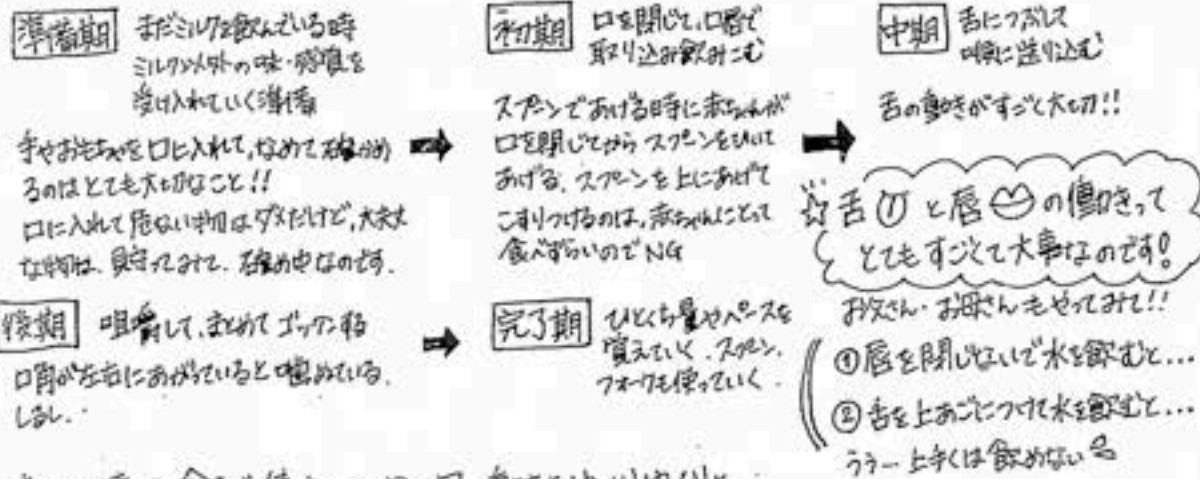 準備期 まだミルクを飲んでいる時
ミルク以外の味・感覚を
受け入れていく準備
手やおもちゃを口に入れて、なめて確かめ
るのはとても大切なこと!!
口に入れて危ない物はダメだけど、大丈夫
な物は、見守ってみて。確め中なのです.
初期 口を閉じて、口唇で
取り込み飲みこむ
スプーンであげる時に赤ちゃんが
口を閉じてから スプーンをひいて
あげる. スプーンを上にあげて
こすりつけるのは、赤ちゃんにとって
食べずらいのでNG
中期 舌につぶして
喉に送り込む
舌の動きがすごく大切!!
舌と唇の働きって
とてもすごくて大事なのです!
お父さん・お母さんもやってみて!!
①唇を閉じないで水を飲むと...
②舌を上あごにつけて水を飲むと...
うう… 上手くは飲めない
後期 咀嚼して、まとめて ゴックンする
口角が左右にあがっていると噛めている.
しるし.
完了期 ひとくち量やペースを
覚えていく. スプーン、
フォークも使っていく.